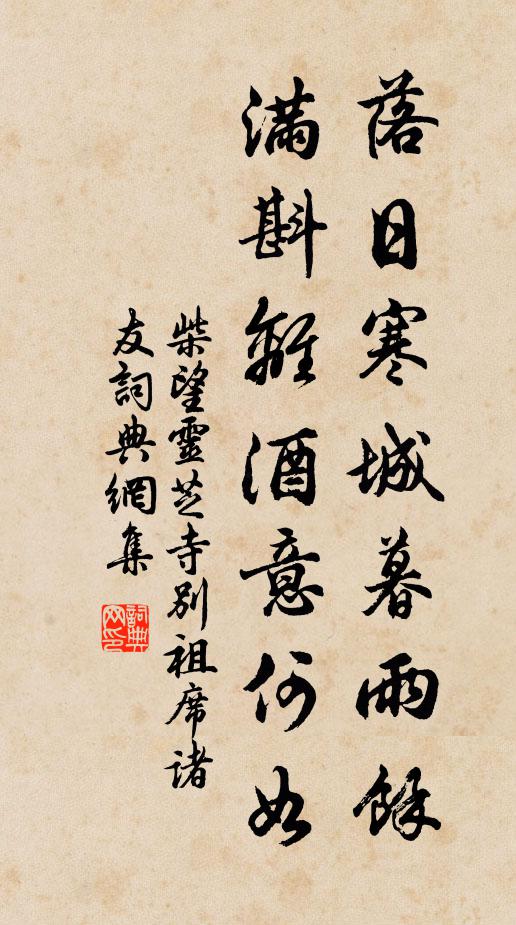 落日寒城暮雨餘
滿斟離酒意何如
柴望靈芝寺別祖席諸
友詞典網集
詞典網印